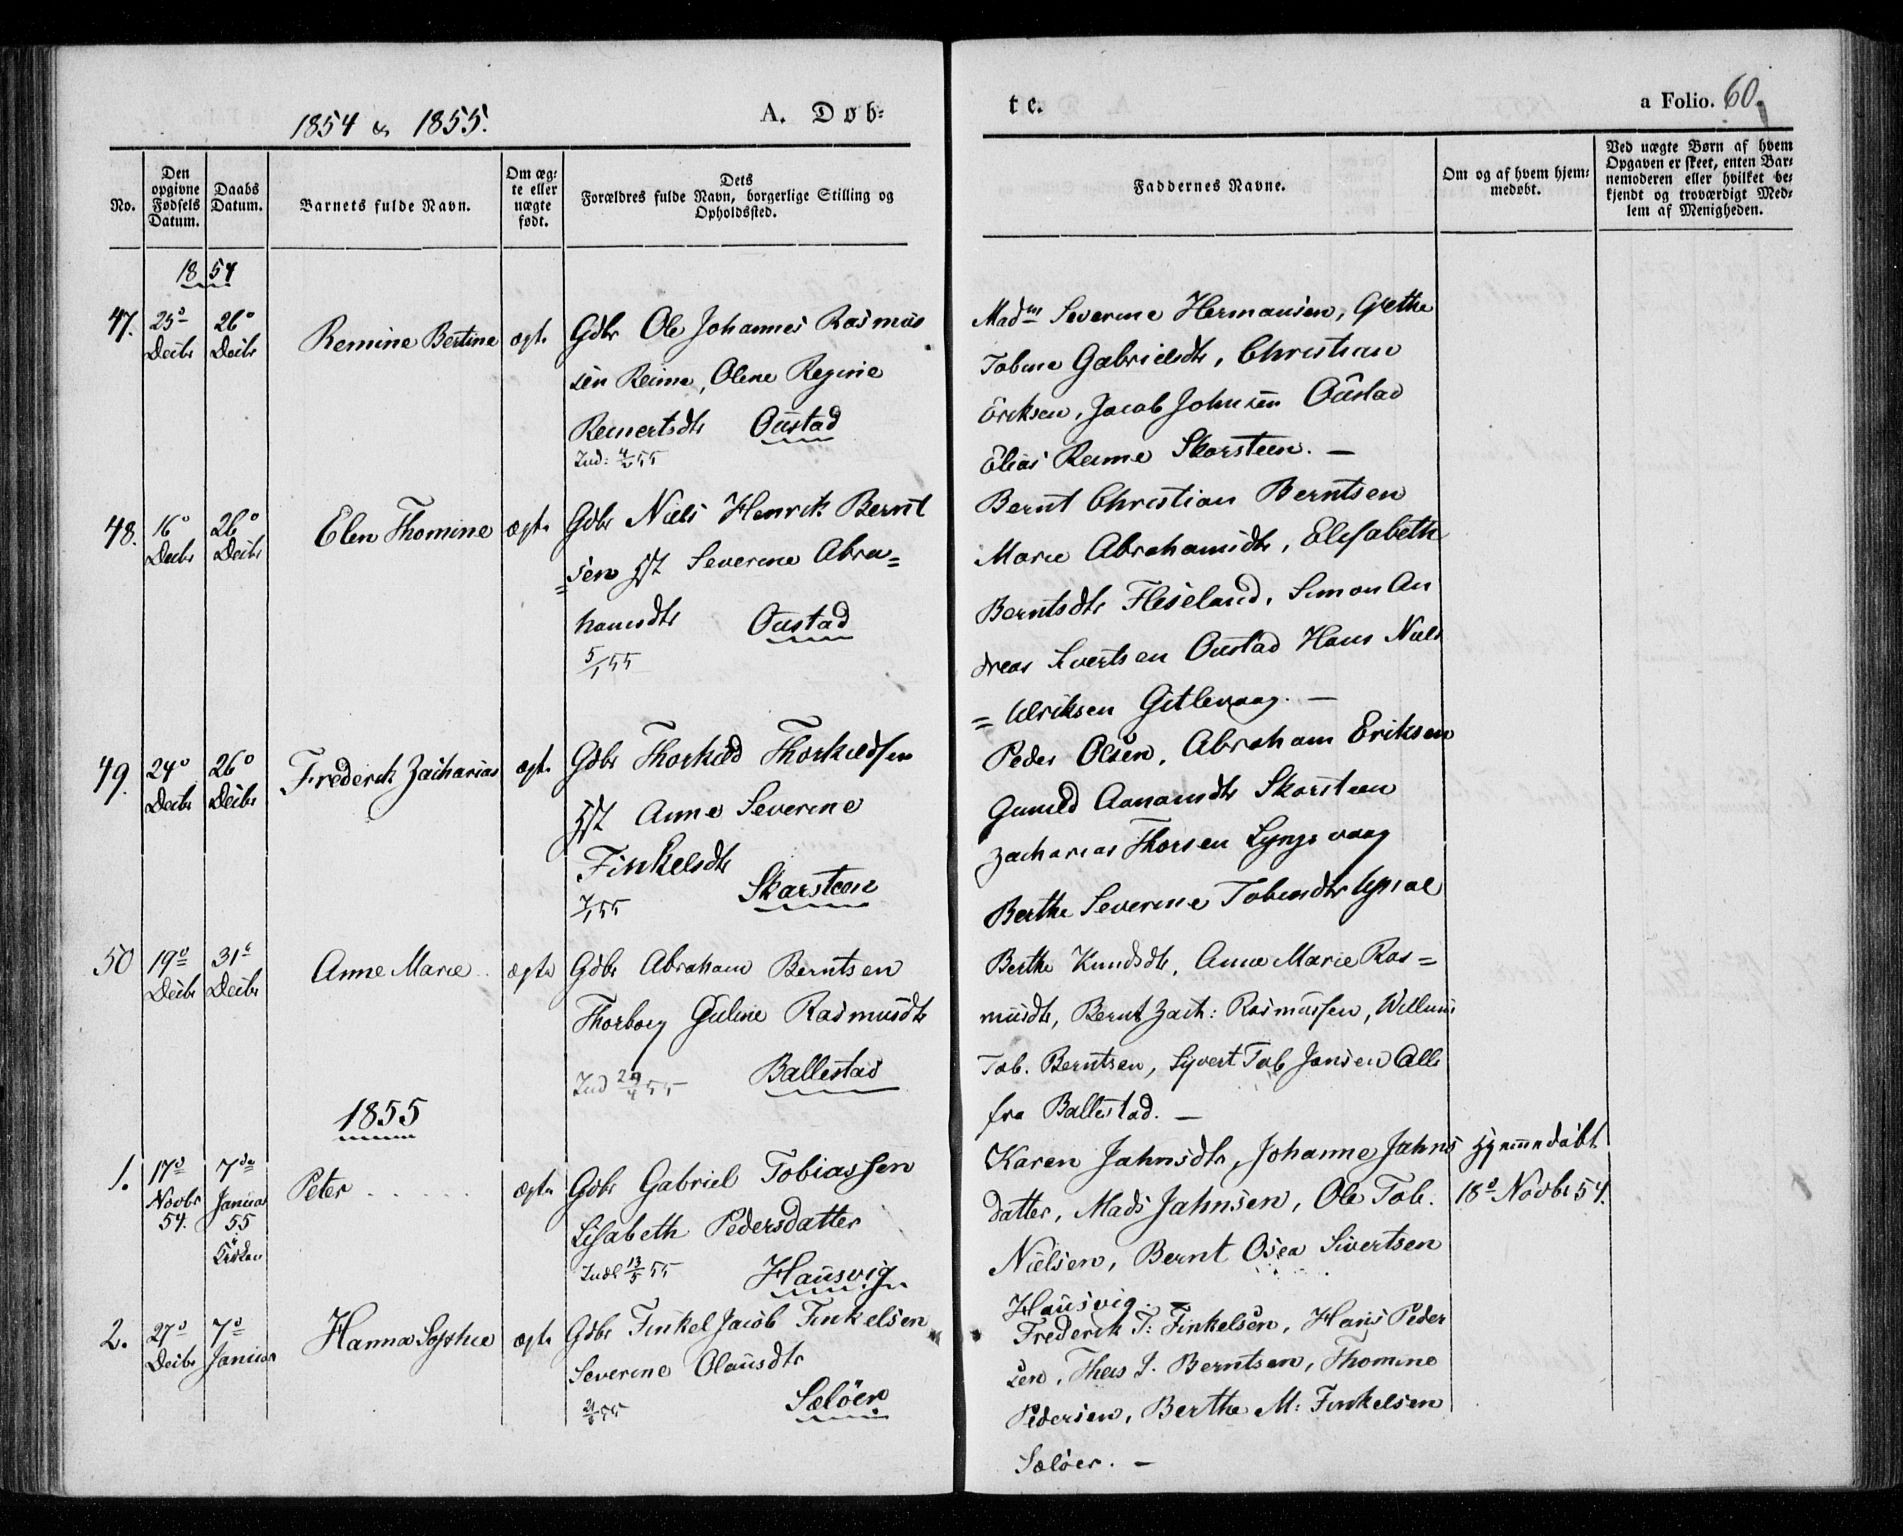 1854 & 1855.
A. Døb-
te.
a Folio. 60.
No.
Den opgivne Fødsels Datum.
Daabs Datum.
Barnets fulde Navn.
Om ægte eller uægte født.
Dets Forældres fulde Navn, borgerlige Stilling og Opholdssted.
Faddernes Navne.
Om og af hvem hjemmedøbt.
Ved uægte Børn af hvem Opgaven er skeet, enten Barnemoderen eller hvilket bekjendt og troværdigt Medlem af Menigheden.
1854
47. 25° Decbr 26° Decbr Remine Bertine ægte Gdbr Ole Johannes Rasmus
sen Reime, Olene Regine
Reinertsdtr Oustad
Ind: 4/2 55
Madm Severine Hermansen, Grethe
Tobine Gabrielsdtr, Christian
Eriksen, Jacob Johnsen Oustad
Elias Reime Skarsteen. —
48. 16° Decbr 26° Decbr Elen Thomine ægte Gdbr Niels Henrik Bernt
=sen Hst Severine Abra=
hamsdtr Oustad
5/1 55
Bernt Christian Berntsen
Marie Abrahamsdtr, Elisabeth
Berntsdtr Fleseland, Simon An
dreas Sivertsen Oustad Hans Niels
=Ulriksen Gitlevaag. —
49. 24° Decbr 26° Decbr Frederik Zacharias ægte Gdbr Thorkild Thorkildsen
Hst Anne Severine
Finkelsdtr
Skarsteen
7/1 55
Peder Olsen, Abraham Eriksen
Gunild Aanansdtr Skarsteen
Zacharias Thorsen Lyngsvaag
Berthe Severine Tobiasdtr Upsal
50 19° Decbr 31° Decbr Anne Marie ægte Gdbr Abraham Berntsen
Thorborg Guline Rasmusdtr
Ind 29/4 55 Ballestad
Berthe Knudsdtr, Anne Marie Ras=
musdtr, Bernt Zach: Rasmussen, Willum
Tob. Berntsen, Syvert Tob Jansen Alle
fra Ballestad. —
1855
1. 17° Novbr 54. 7de Januar 55 i Kirken Peter ægte Gdbr Gabriel Tobiassen
Lisabeth Pedersdatter
Indl 13/5 55 Hausvig
Karen Jahnsdtr, Johanne Jahns
datter, Mads Jahnsen, Ole Tob.
Nielsen, Bernt Osea Sivertsen
Hausvig. —
Hjemmedøbt
18° Novbr 54.
2. 27° Decbr 7° Januar Hanna Sophie ægte Gdbr Finkel Jacob Finkelsen
Severine Olausdtr
Sæløer
Frederik T: Finkelsen, Hans Peder
sen, Theis J. Berntsen, Thomine
Pedersen, Berthe M: Finkelsen
Sæløer. —